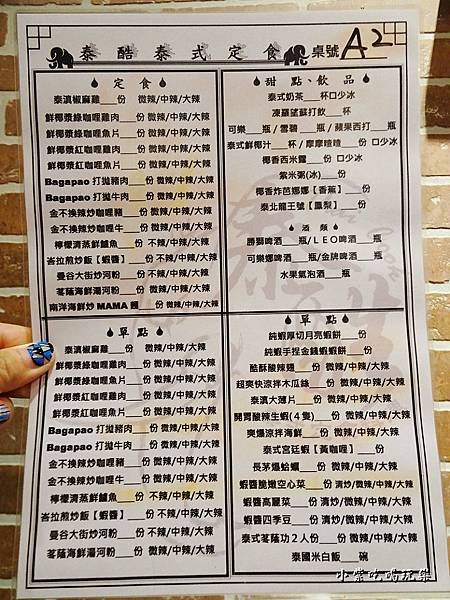 泰酷泰式定食 桌號 A2
定食
泰滇椒麻雞___份 微辣/中辣/大辣
鮮椰漿綠咖哩雞肉___份 微辣/中辣/大辣
鮮椰漿綠咖哩魚片___份 微辣/中辣/大辣
鮮椰漿紅咖哩雞肉___份 微辣/中辣/大辣
鮮椰漿紅咖哩魚片___份 微辣/中辣/大辣
Bagapao 打拋豬肉___份 微辣/中辣/大辣
Bagapao 打拋牛肉___份 微辣/中辣/大辣
金不換辣炒咖哩豬___份 微辣/中辣/大辣
金不換辣炒咖哩牛___份 微辣/中辣/大辣
檸檬清蒸鮮鱸魚___份 不辣/中辣/大辣
峇拉煎炒飯【蝦醬】___份 不辣/中辣/大辣
曼谷大街炒河粉___份 不辣/中辣/大辣
茗蔭海鮮湯河粉___份 微辣/中辣/大辣
南洋海鮮炒 MAMA 麵___份 微辣/中辣/大辣
甜點、飲品
泰式奶茶___杯口少冰
凍羅望蘇打飲___杯
可樂___瓶/雪碧___瓶/蘋果西打___瓶
泰式鮮椰汁___杯/摩摩喳喳___份 口少冰
椰香西米露___份 口少冰
紫米粥(冰)___份
椰香炸芭娜娜【香蕉】___份
泰北龍王號【鳳梨】___份
酒類
勝獅啤酒___瓶/LEO啤酒___瓶
可樂娜啤酒___瓶/金牌啤酒___瓶
水果氣泡酒___瓶
單點
泰滇椒麻雞___份 微辣/中辣/大辣
鮮椰漿綠咖哩雞肉___份 微辣/中辣/大辣
鮮椰漿綠咖哩魚片___份 微辣/中辣/大辣
鮮椰漿紅咖哩雞肉___份 微辣/中辣/大辣
鮮椰漿紅咖哩魚片___份 微辣/中辣/大辣
Bagapao 打拋豬肉___份 微辣/中辣/大辣
Bagapao 打拋牛肉___份 微辣/中辣/大辣
金不換辣炒咖哩豬___份 微辣/中辣/大辣
金不換辣炒咖哩牛___份 微辣/中辣/大辣
檸檬清蒸鮮鱸魚___份 不辣/中辣/大辣
峇拉煎炒飯【蝦醬】___份 不辣/中辣/大辣
曼谷大街炒河粉___份 不辣/中辣/大辣
茗蔭海鮮湯河粉___份 微辣/中辣/大辣
單點
純蝦厚切月亮蝦餅___份
純蝦手捏金錢蝦蝦餅___份
酷酥酸辣翅___份 微辣/中辣/大辣
超爽快涼拌木瓜絲___份 微辣/中辣/大辣
泰滇大薄片___份 微辣/中辣/大辣
開胃酸辣生蝦(4隻)___份 微辣/中辣/大辣
爽爆涼拌海鮮___份 微辣/中辣/大辣
泰式宮廷蝦【黃咖哩】___份
長茅爆蛤蠣___份 微辣/中辣/大辣
蝦醬脆嫩空心菜___份 清炒/微辣/中辣/大辣
蝦醬高麗菜___份 清炒/微辣/中辣/大辣
蝦醬四季豆___份 清炒/微辣/中辣/大辣
泰式茗蔭功2人份___份 微辣/中辣/大辣
泰國米白飯___碗
小紫吃喝玩樂